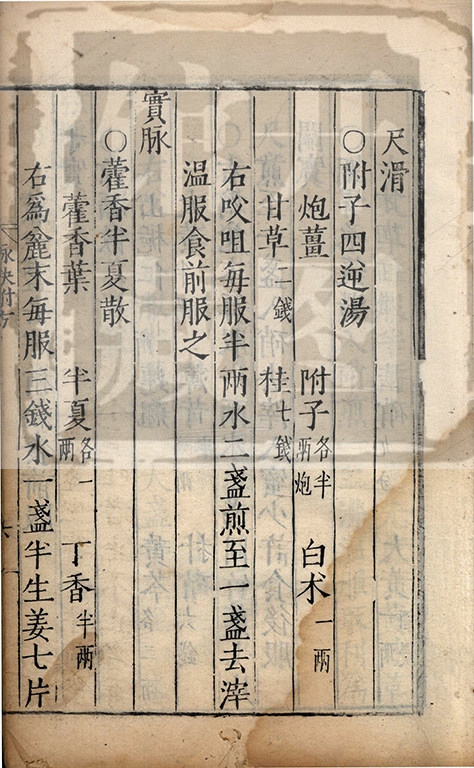 尺滑
○附子四逆湯
炮薑 附子各半兩炮 白术一兩
甘草二錢 桂七錢
右㕮咀每服半兩水二盞煎至一盞去滓
温服食前服之
實脉
○藿香半夏散
藿香葉 半夏各一兩 丁香半兩
右爲麄末每服三錢水一盞半生姜七片